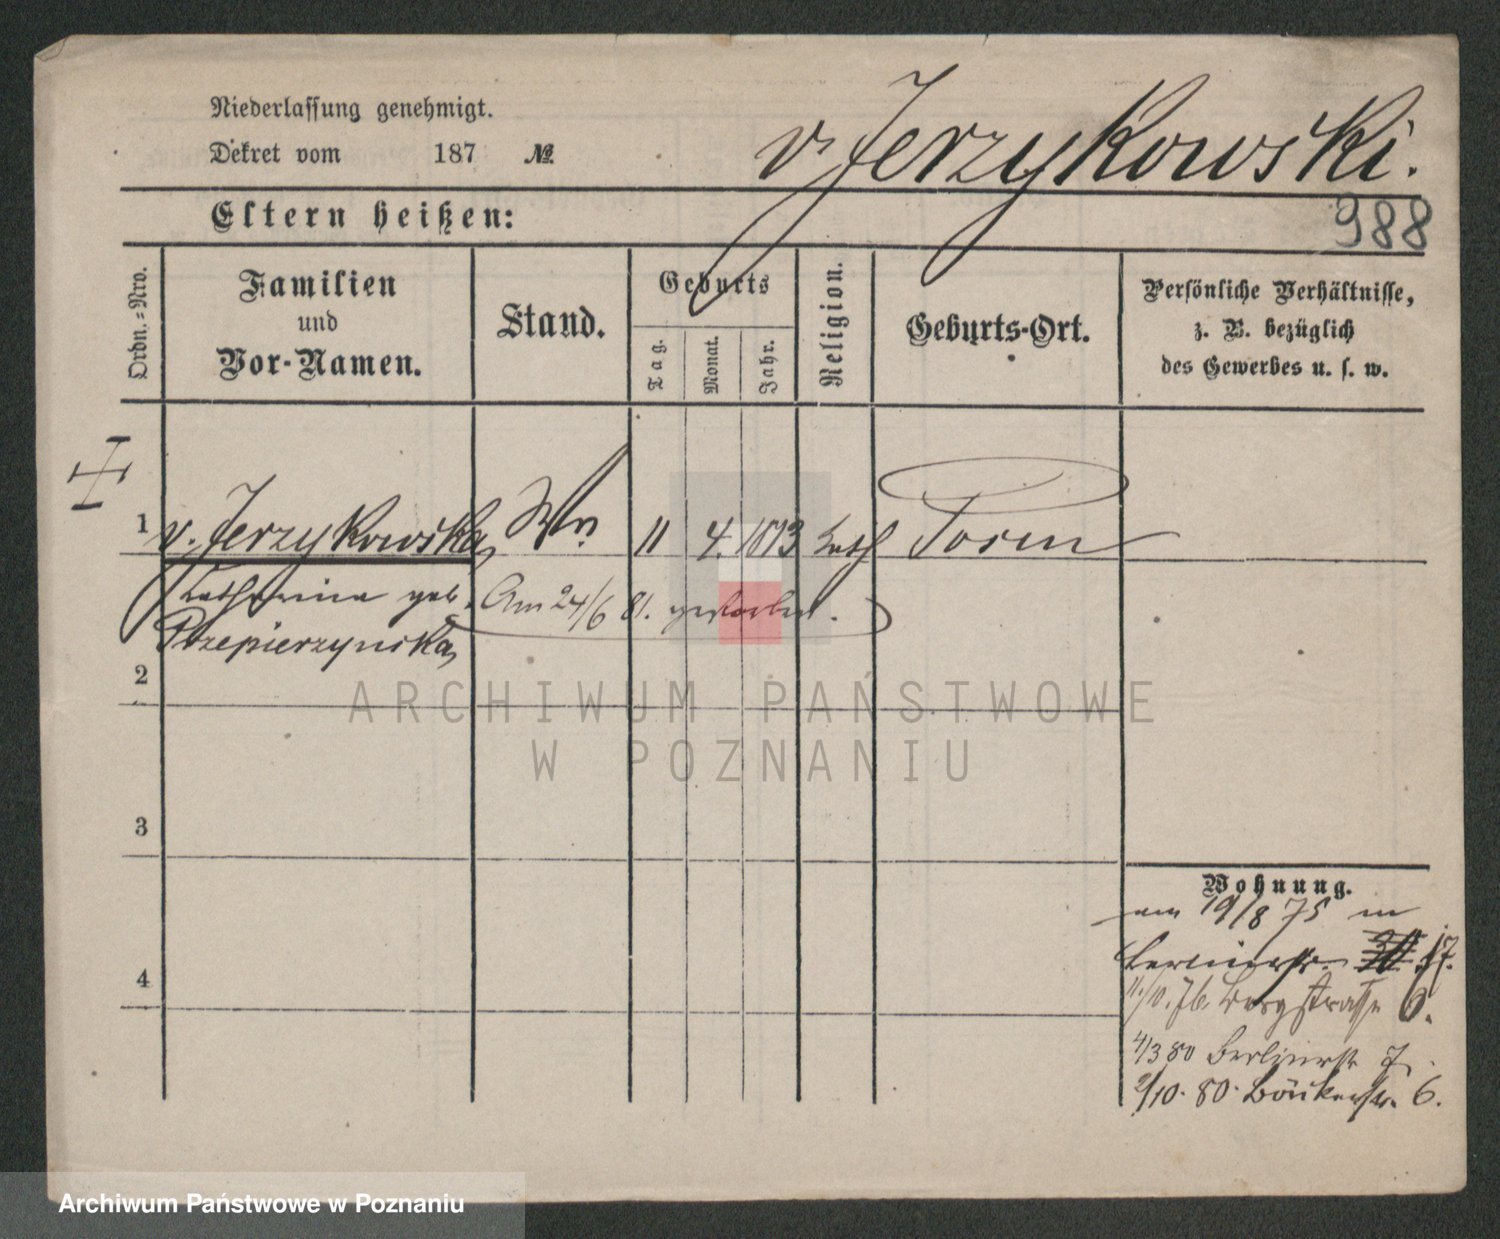 Niederlassung genehmigt.
Dekret vom 187 №
v. Jerzykowski.
988
Eltern heißen:
Ordn.=Nro.
Familien
und
Vor-Namen.
Stand.
Geburts
Tag.
Monat.
Jahr.
Religion.
Geburts-Ort.
Persönliche Verhältnisse,
z. B. bezüglich
des Gewerbes u. s. w.
1 v. Jerzykowska, Ww. 11 4. 1813 kath Posen
Catharina geb. Am 24/6 81. gestorben.
Przepierzynska,
2
3
4
Wohnung.
am 19/8 75 in
Berlinerstr. 30 17.
11./10. 76. Bergstrasse 6.
4/3 80 Berlinerstr 7.
2/10. 80. Bäckerstr. 6.
ARCHIWUM PAŃSTWOWE
W POZNANIU
Archiwum Państwowe w Poznaniu